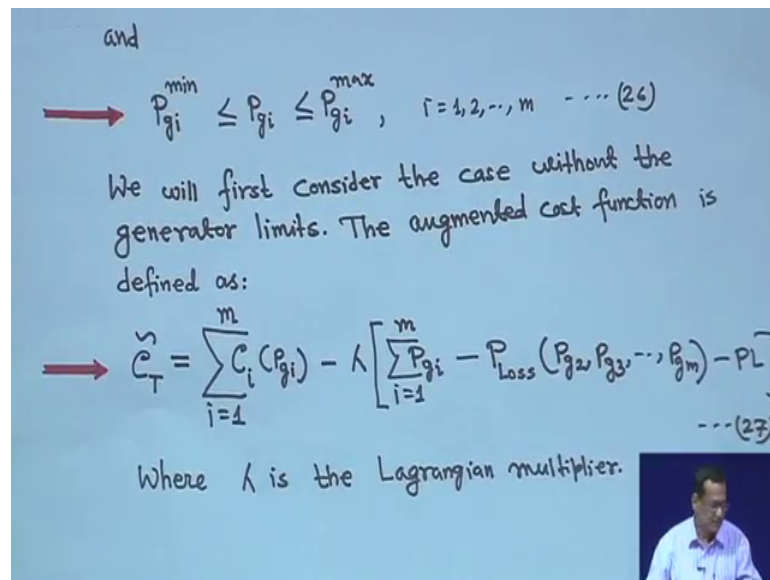 and
P_gi^min ≤ P_gi ≤ P_gi^max, i = 1, 2, .., m ---- (26)
We will first consider the case without the
generator limits. The augmented cost function is
defined as:
C̃_T = ∑_{i=1}^{m} C_i (P_gi) - λ [ ∑_{i=1}^{m} P_gi - P_Loss (P_g2, P_g3, --, P_gm) - PL ]
---(27)
Where λ is the Lagrangian multiplier.